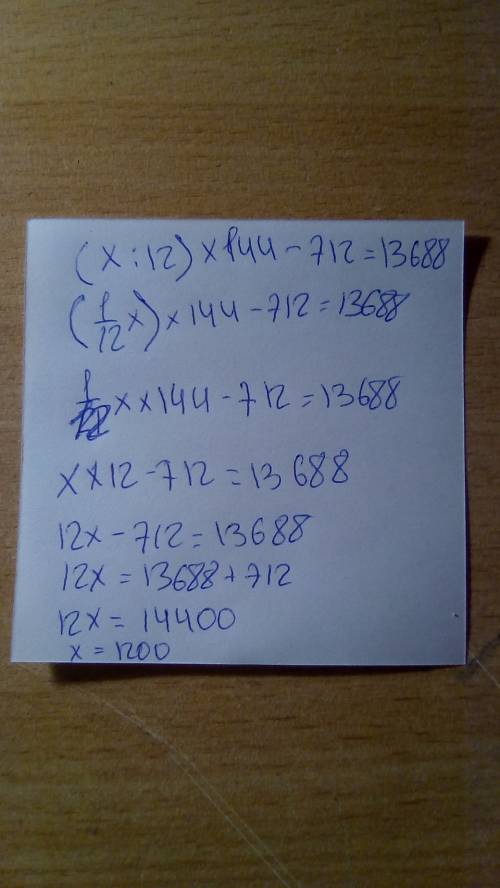 (x:12)×144-712=13688
(1/12 x)×144-712=13688
1/12 x×144-712=13688
x×12-712=13688
12x-712=13688
12x=13688+712
12x=14400
x=1200